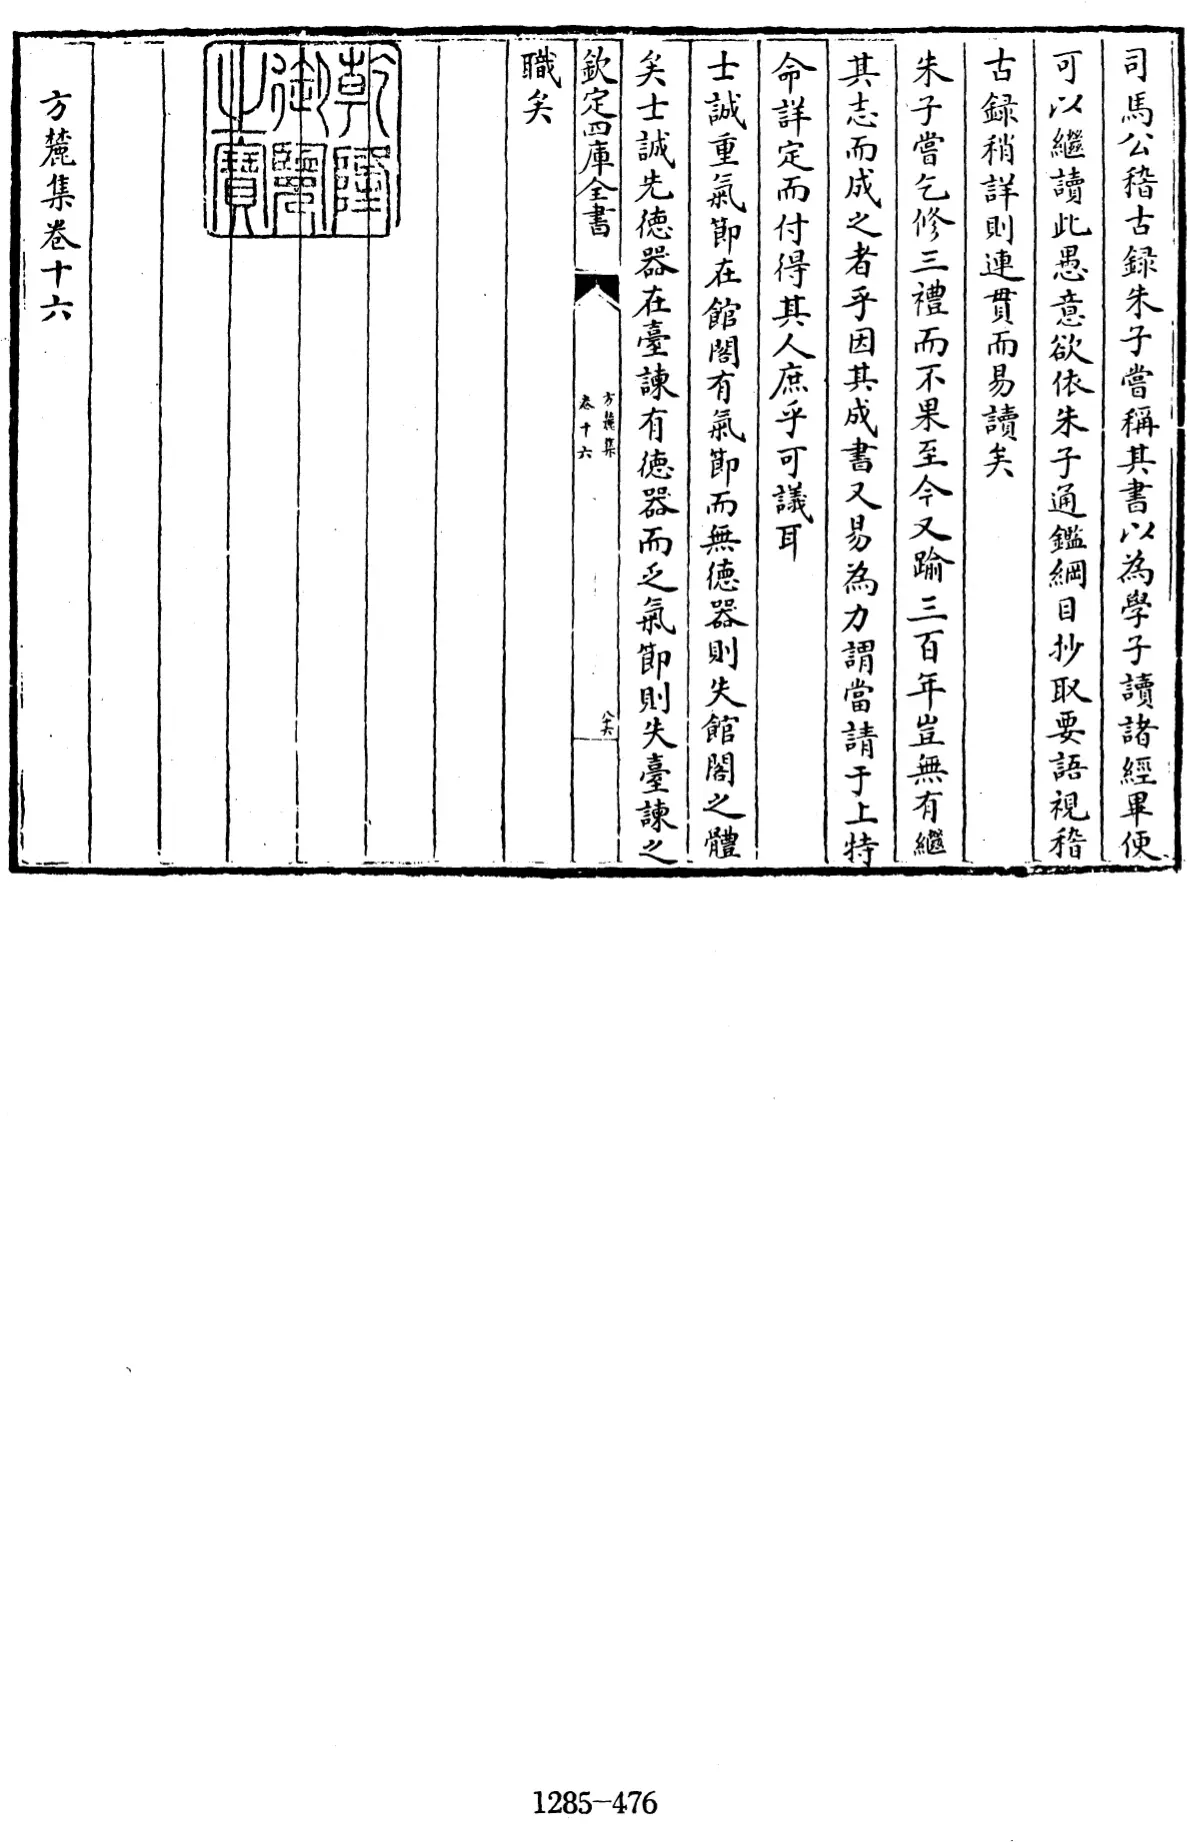 司馬公稽古録朱子嘗稱其書以為學子讀諸經畢便
可以繼讀此愚意欲依朱子通鑑綱目抄取要語視稽
古録稍詳則連貫而易讀矣
朱子嘗乞修三禮而不果至今又踰三百年豈無有繼
其志而成之者乎因其成書又易為力謂當請于上特
命詳定而付得其人庶乎可議耳
士誠重氣節在館閣有氣節而無德器則失館閣之體
矣士誠先德器在臺諫有德器而乏氣節則失臺諫之
欽定四庫全書
方麓集
卷十六
職矣
乾隆
御覽
之寶
方麓集卷十六
1285-476